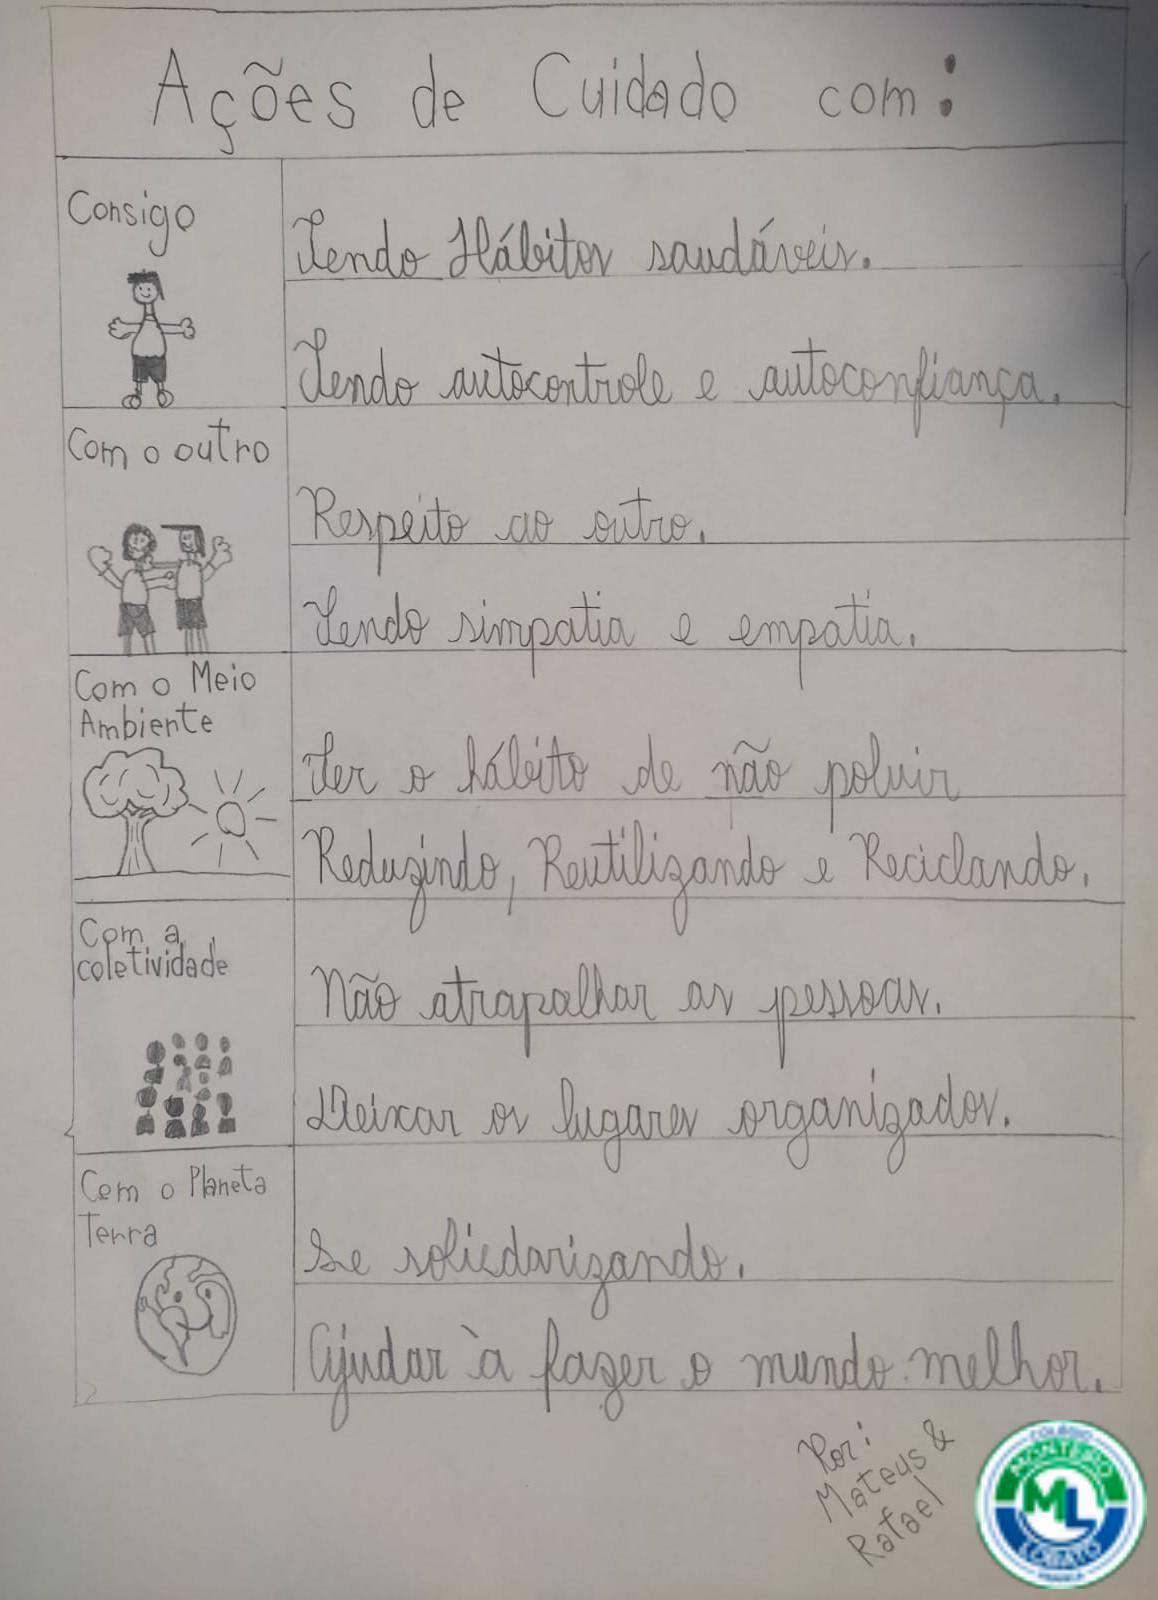 Ações de Cuidado com:
Consigo
Tendo Hábitos saudáveis.
Tendo autocontrole e autoconfiança.
Com o outro
Respeito ao outro.
Tendo simpatia e empatia.
Com o Meio
Ambiente
Ter o hábito de não poluir
Reduzindo, Reutilizando e Reciclando.
Com a
coletividade
Não atrapalhar as pessoas.
Deixar os lugares organizados.
Com o Planeta
Terra
Se soliedarizando.
Ajudar à fazer o mundo melhor.
Por:
Mateus &
Rafael
COLÉGIO
MONTEIRO
ML
LOBATO